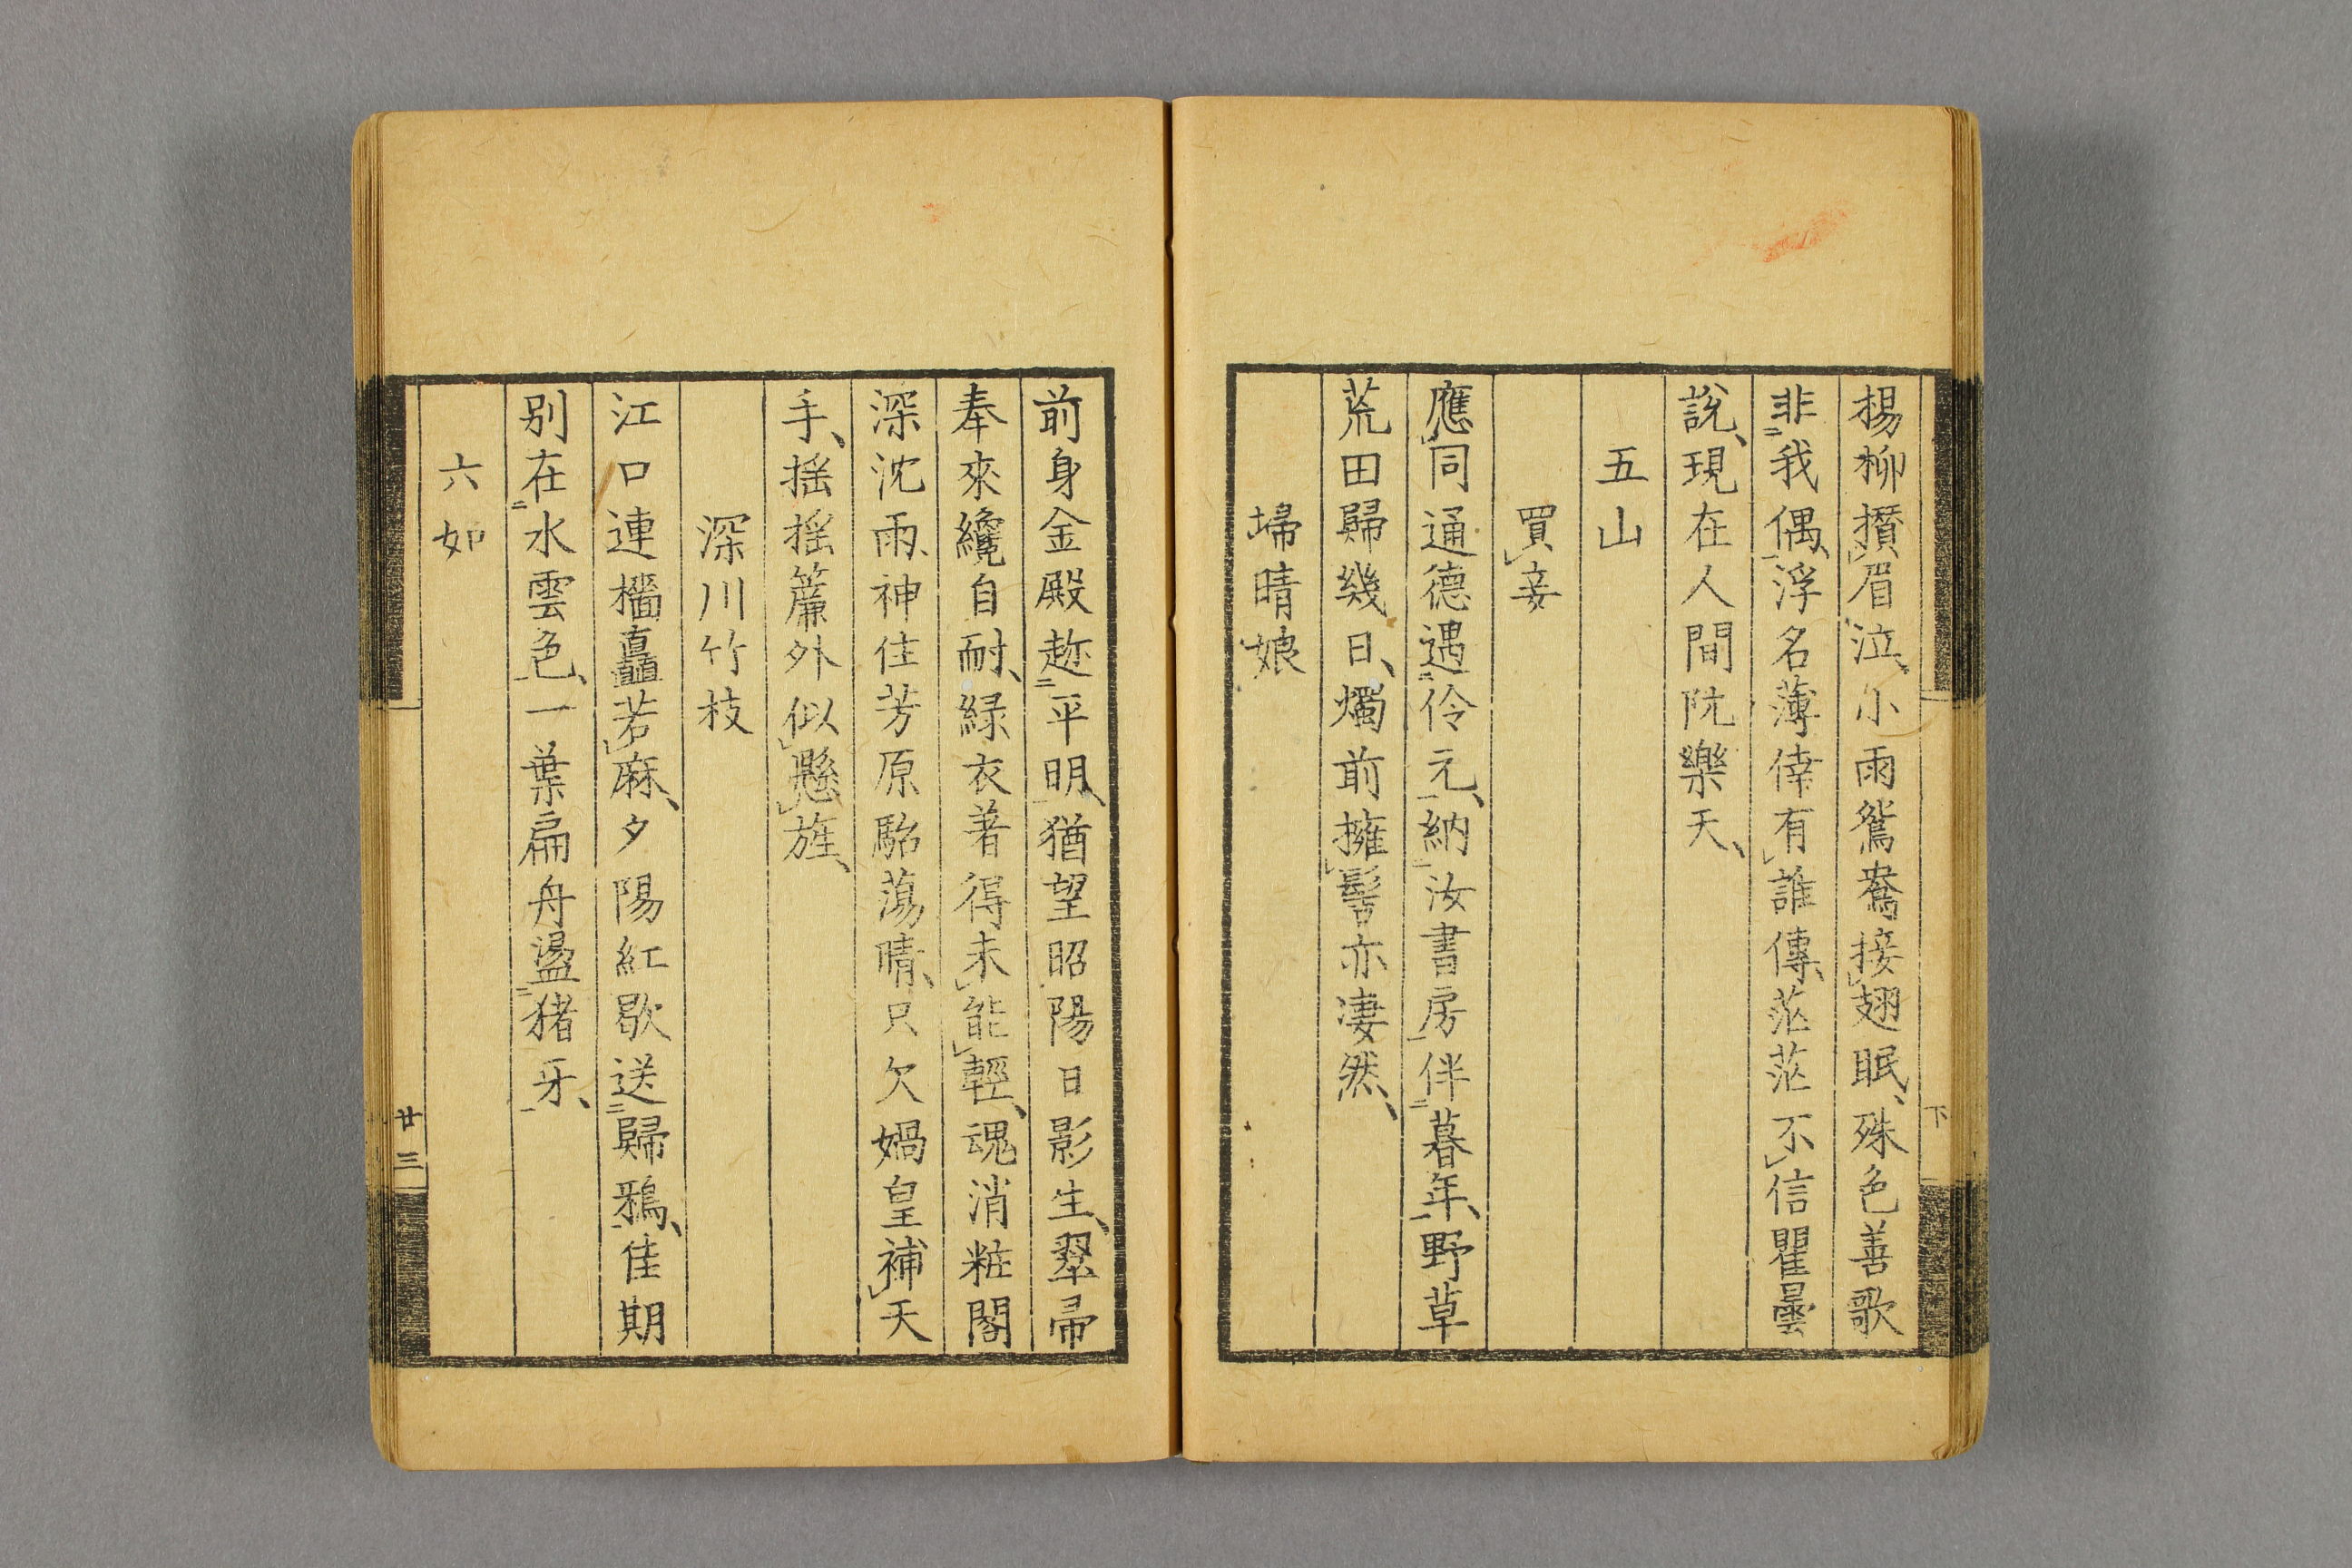 楊柳攅眉泣、小雨鴛鴦接翅眠、殊色善歌
非我偶、浮名薄倖有誰傳、茫茫不信瞿曇
說、現在人間阮樂天、
五山
買妾
應同通德遇伶元、納汝書房伴暮年、野草
荒田歸幾日、燭前擁髻亦凄然、
埽晴娘
下
前身金殿趂平明、猶望昭陽日影生、翠帚
奉來纔自耐、緑衣著得未能輕、魂消粧閣
深沈雨、神住芳原駘蕩晴、只欠媧皇補天
手、揺揺簾外似懸旌、
深川竹枝
江口連檣矗若麻、夕陽紅歇送歸鴉、佳期
別在水雲色、一葉扁舟盪猪牙、
六如
廿三